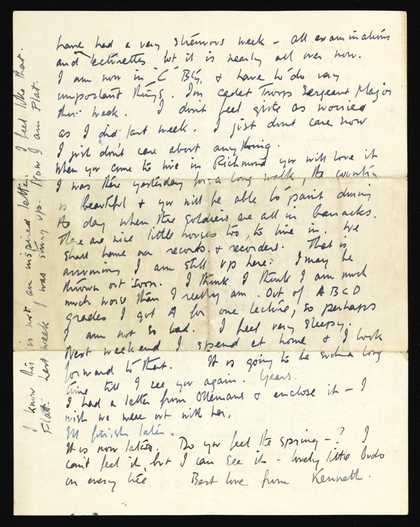 have had a very strenuous week - all examinations
and lecturettes but it is nearly all over now.
I am now in "C" Bty. & have to do very
important things. I'm Cadet Troop Sergeant Major
this week. I don't feel quite as worried
as I did last week. I just dont care now
I just don't care about anything.
When you come to live in Richmond you will love it
I was there yesterday for a long walk, the country
is beautiful & you will be able to paint during
the day when the soldiers are all in barracks.
There are nice little houses too, to live in. We
shall have our records & recorders. That is
assuming I am still up here: I may be
thrown out soon. I think I think I am much
much worse than I really am. Out of A B C D
grades I got A for one lecture, so perhaps
I am not so bad. I feel very sleepy.
Next weekend I spend at home & I look
forward to that. It is going to be such a long
time till I see you again. Years.
I had a letter from & enclose it - I
wish we were out with her.
I'll finish later.
It is now later. Do you feel the spring - ? I
can't feel it, but I can see it - lovely little buds
on every tree Best love from Kenneth.
I know this is not an inspired letter. I feel like that.
Flat. Last week I was strung up. Now I am flat.